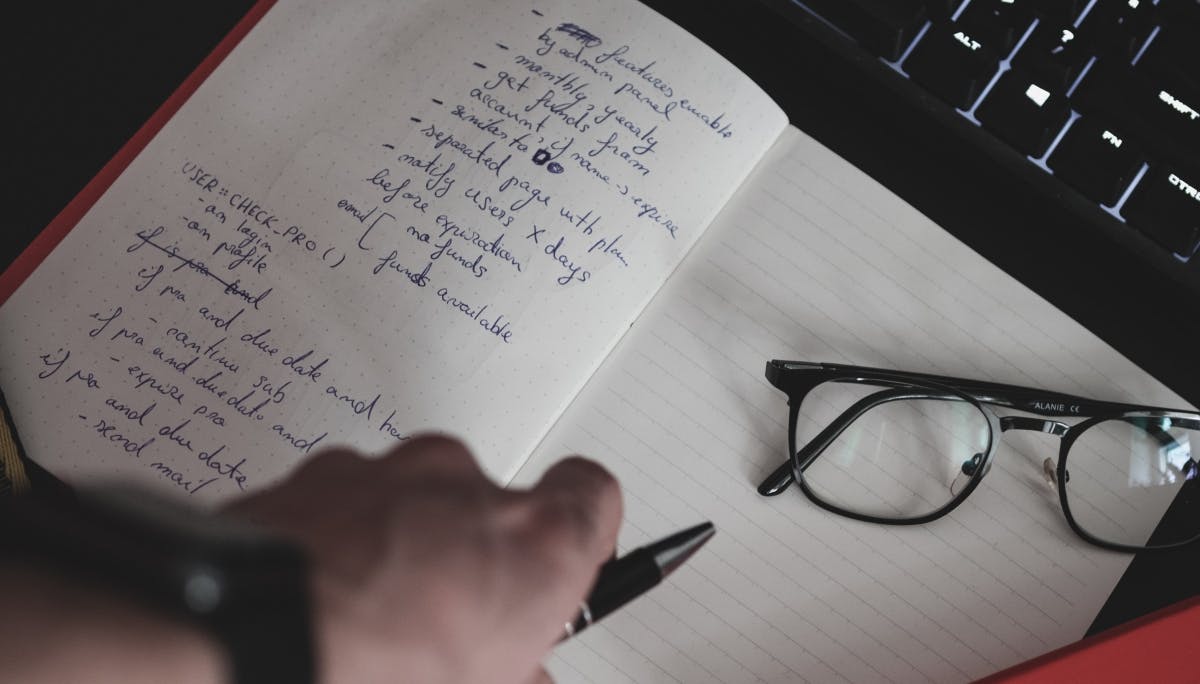 - features enable
by admin panel
- monthly, yearly
- get funds from
account, if name → expire
- similar to DO
- separated page with plan.
- notify users X days
before expiration
email [ no funds
funds available
USER::CHECK_PRO()
- on login
- on profile
if is pro and
if pro and due date and
- continu sub
if pro and due date and
- expire pro
if pro and due date
- send mail
ALT
?
SHIFT
FN
CTRL
ALANIE CE